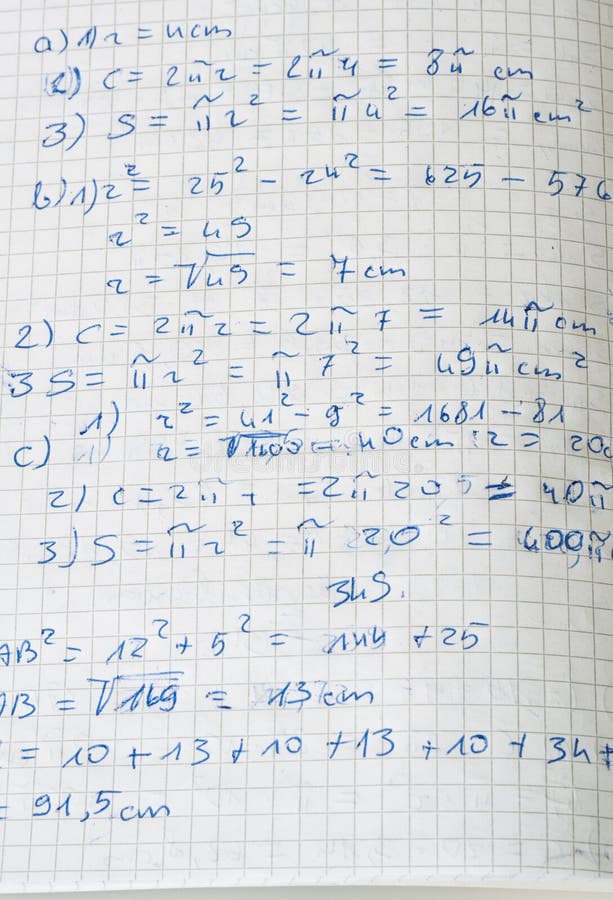 a) 1) r = 4cm
2) C = 2πr = 2π4 = 8π cm
3) S = πr² = π4² = 16π cm²
b) 1) r² = 25² - 24² = 625 - 576
r² = 49
r = √49 = 7cm
2) C = 2πr = 2π7 = 14π cm
3 S = πr² = π7² = 49π cm²
1) r² = 41² - 9² = 1681 - 81
c) r = = 40cm :2 = 20
2) C = 2π = 2π 20 = 40π
3) S = πr² = π 20² = 400π
345.
AB² = 12² + 5² = 144 + 25
AB = √169 = 13cm
= 10 + 13 + 10 + 13 + 10 + 34 +
= 91,5cm